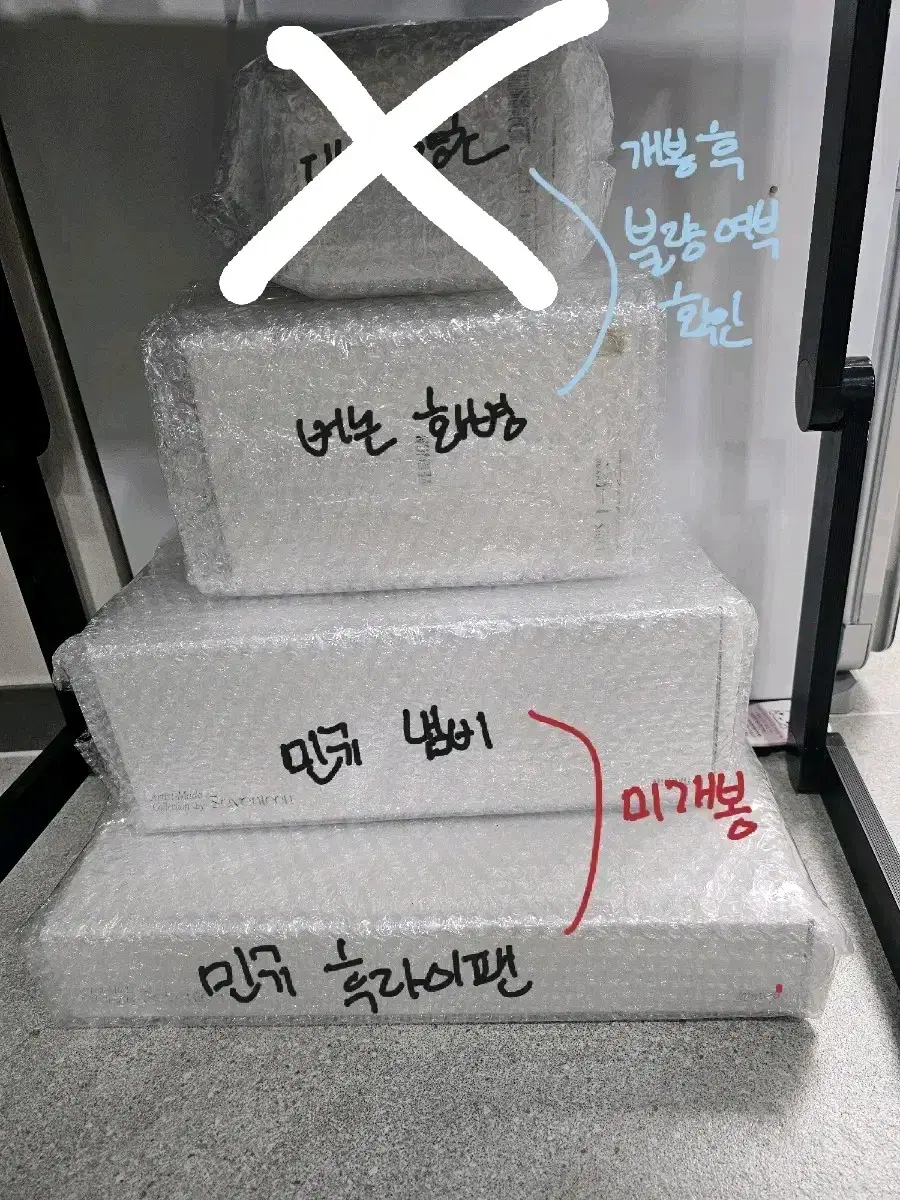 개봉 흑
불량 여부
확인
버논 화병
민규 냄비
Artist-Made
Collection by SEVENTEEN
미개봉
민규 흑라이팬